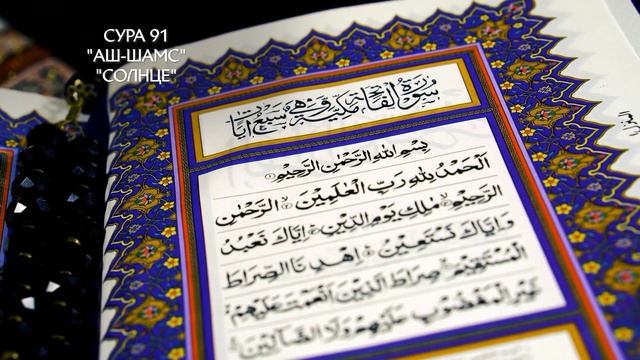 СУРА 91
"АШ-ШАМС"
"СОЛНЦЕ"
سورة الفاتحة مكية وهي سبع آيات
بِسْمِ اللهِ الرَّحْمٰنِ الرَّحِيمِ
اَلْحَمْدُ لِلّٰهِ رَبِّ الْعٰلَمِينَ الرَّحْمٰنِ
الرَّحِيمِ مٰلِكِ يَوْمِ الدِّينِ اِيَّاكَ نَعْبُدُ
وَاِيَّاكَ نَسْتَعِينُ اِهْدِنَا الصِّرَاطَ
الْمُسْتَقِيمَ صِرَاطَ الَّذِينَ اَنْعَمْتَ عَلَيْهِمْ
غَيْرِ الْمَغْضُوبِ عَلَيْهِمْ وَلَا الضَّالِّينَ